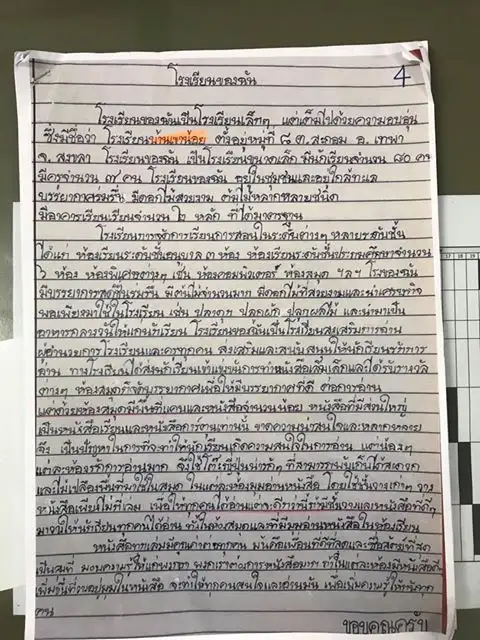 โรงเรียนของฉัน
4
โรงเรียนของฉันเป็นโรงเรียนเล็กๆ แต่เต็มไปด้วยความอบอุ่น
ซึ่งมีชื่อว่า โรงเรียนบ้านเขาน้อย ตั้งอยู่หมู่ที่ ๘ ต.สะกอม อ. เทพา
จ. สงขลา โรงเรียนของฉัน เป็นโรงเรียนขนาดเล็ก มีนักเรียนจำนวน ๘๐ คน
มีครูจำนวน ๗ คน โรงเรียนของฉัน อยู่ในชุมชนและอยู่ใกล้ทะเล
บรรยากาศร่มรื่น มีดอกไม้สวยงาม ต้นไม้หลากหลายชนิด
มีอาคารเรียนเรียนจำนวน ๒ หลัก ที่ได้มาตรฐาน
โรงเรียนการจัดการเรียนการสอนในระดับต่างๆ หลายระดับชั้น
ได้แก่ ห้องเรียนระดับชั้นอนุบาล ๓ ห้อง ห้องเรียนระดับชั้นประถมศึกษาจำนวน
๖ ห้อง ห้องพิเศษต่างๆ เช่น ห้องคอมพิวเตอร์ ห้องสมุด ฯลฯ โรงของฉัน
มีบรรยากาศดีร่มรื่น มีต้นไม้จำนวนมาก มีดอกไม้ที่สวยงามและนำเศรษฐกิจ
พอเพียงมาใช้ในโรงเรียน เช่น ปลาดุก ปลูกผัก ปลูกผลไม้ และนำมาเป็น
อาหารกลางวันให้แก่นักเรียน โรงเรียนของฉันเป็นโรงเรียนส่งเสริมการอ่าน
ผู้อำนวยการโรงเรียนและครูทุกคน ส่งเสริมและสนับสนุนให้นักเรียนรักการ
อ่าน ทางโรงเรียนได้ส่งนักเรียนเข้าแข่งขันการทำหนังสือเล่มเล็กและได้รับรางวัล
ต่างๆ ห้องสมุดก็จัดบรรยากาศเพื่อให้มีบรรยากาศที่ดี ต่อการอ่าน
แต่ด้วยห้องสมุดมีพื้นที่แคบและหนังสือจำนวนน้อย หนังสือที่มีส่วนใหญ่
เป็นหนังสือเรียนและหนังสือการอ่านทานนี้ ขาดความน่าสนใจและหลากหลาย
จึง เป็นปัญหาในการที่จะทำให้นักเรียนเกิดความสนใจในการอ่าน แต่น้องๆ
แต่ละห้องรักการอ่านมาก จึงใช้โต๊ะญี่ปุ่นน่ารักๆ ที่สามารถพับเก็บได้สะดวก
และไม่เปลืองพื้นที่มาใช้ในสมุด ในแต่ละห้องมุมอ่านหนังสือ โดยใช้ชั้นวางเก่าๆ วาง
หนังสือเพียงไม่กี่เล่ม เพื่อให้ทุกคนได้อ่านแต่จะดีกว่านี้ถ้ามีชั้นวางและหนังสือที่ดีๆ
มาวางให้นักเรียนทุกคนได้อ่าน ทั้งในห้องสมุดและที่มีมุมอ่านหนังสือในห้องเรียน
หนังสือทุกเล่มมีคุณค่าต่อทุกคน มันคือเพื่อนที่ดีที่สุดและซื่อสัตย์ที่สุด
คน
ขอบคุณครับ